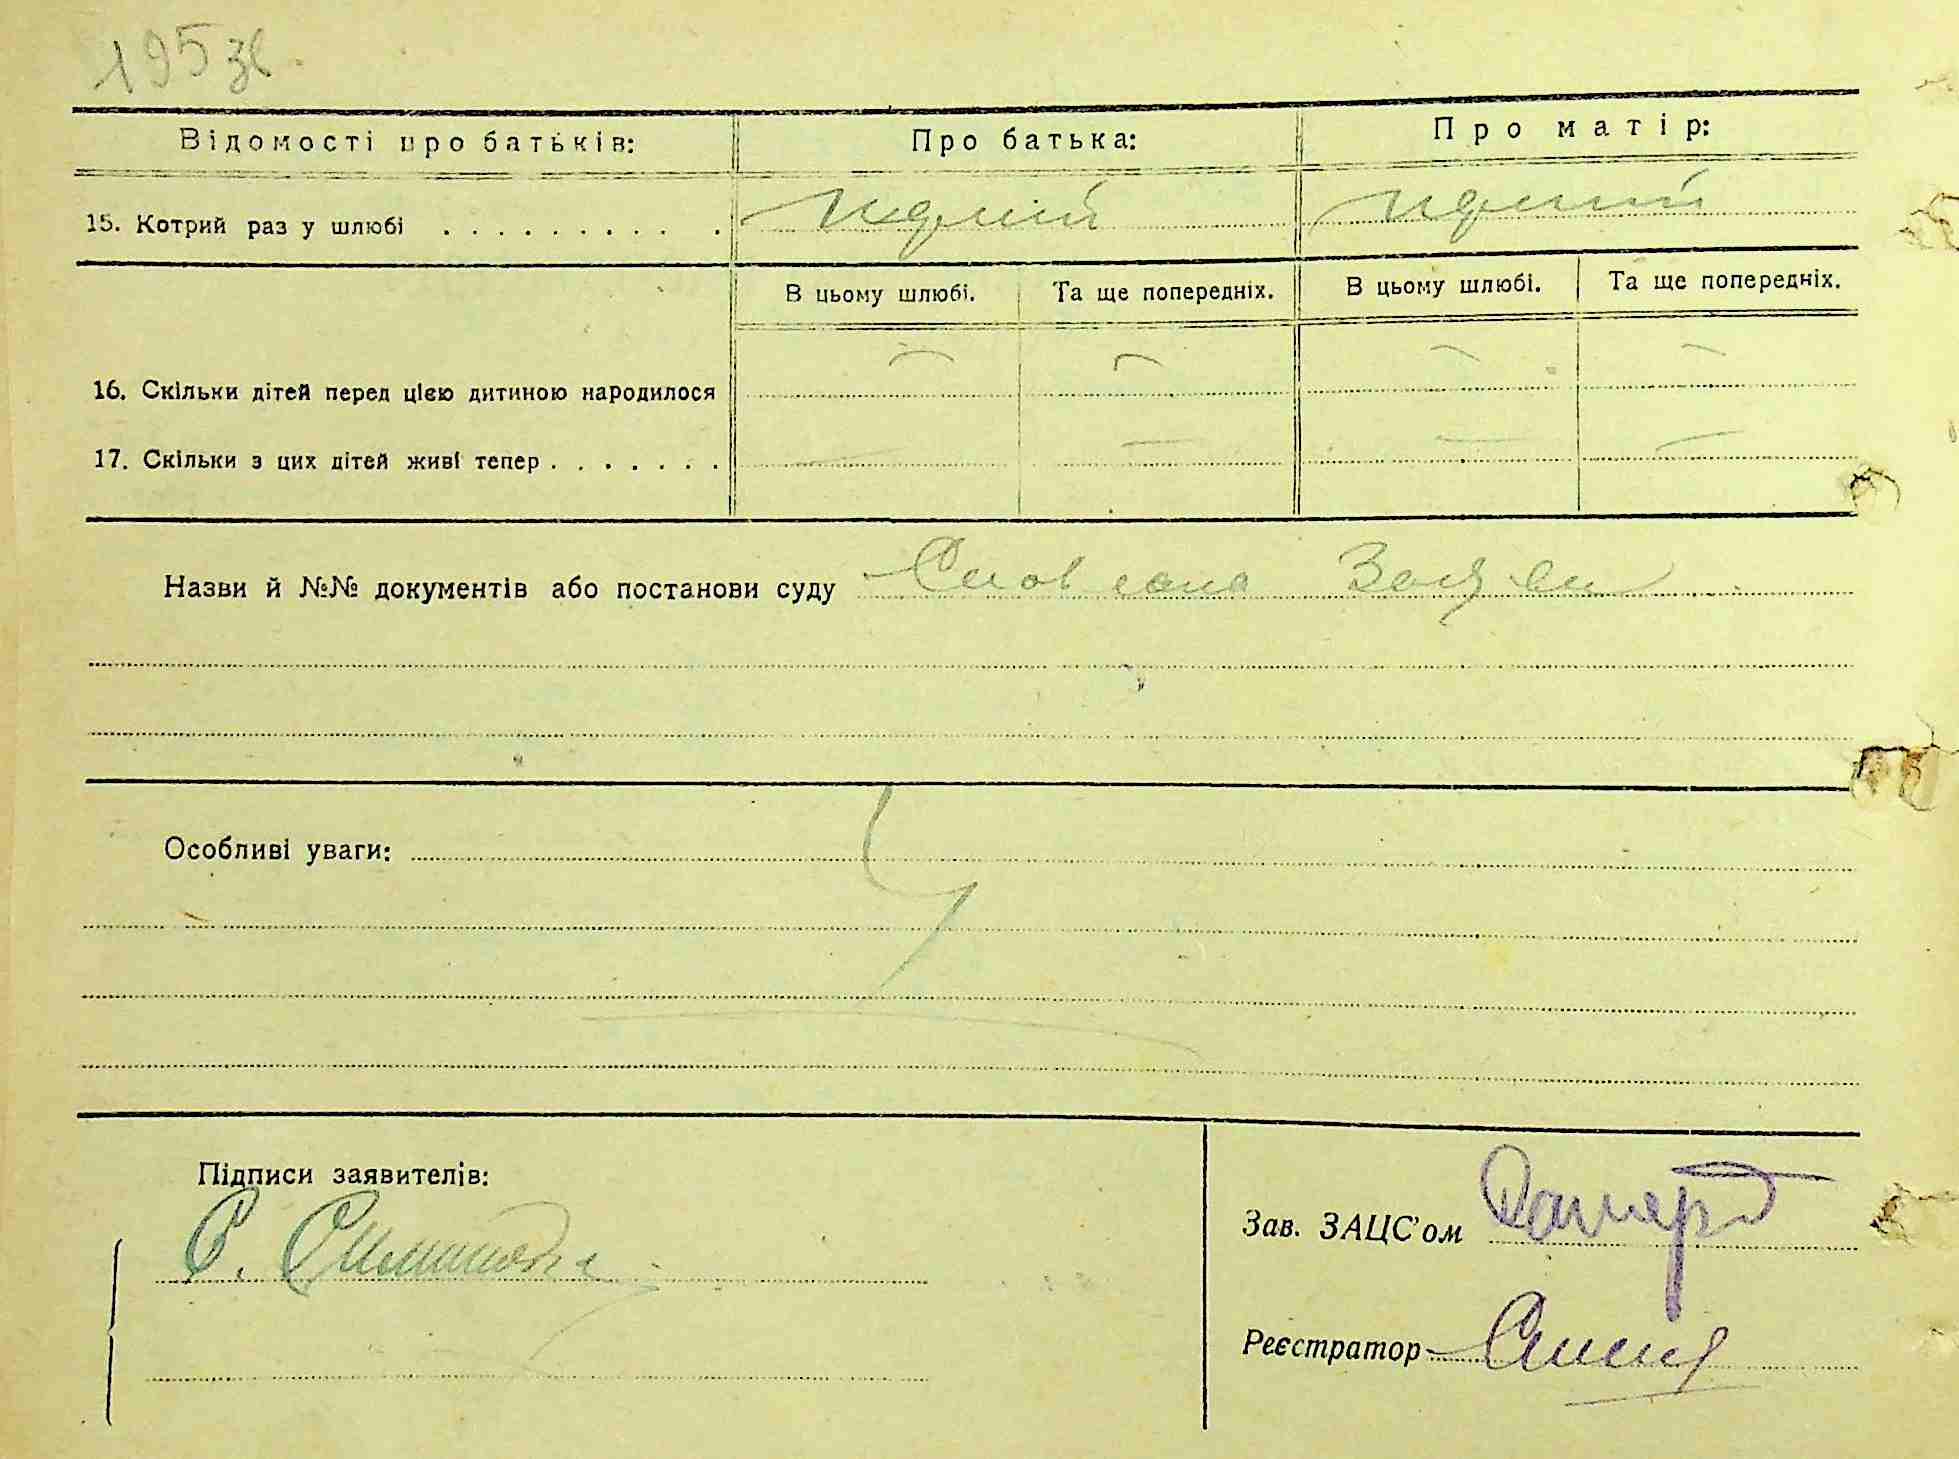 195 зв.
Відомості про батьків:
Про батька:
Про матір:
15. Котрий раз у шлюбі . . . . . . . . . .
перший
перший
В цьому шлюбі.
Та ще попередніх.
В цьому шлюбі.
Та ще попередніх.
16. Скільки дітей перед цією дитиною народилося
— — — —
17. Скільки з цих дітей живі тепер . . . . . . .
— — — —
Назви й №№ документів або постанови суду
Особливі уваги:
Підписи заявителів:
С.
Зав. ЗАЦС'ом
Реєстратор